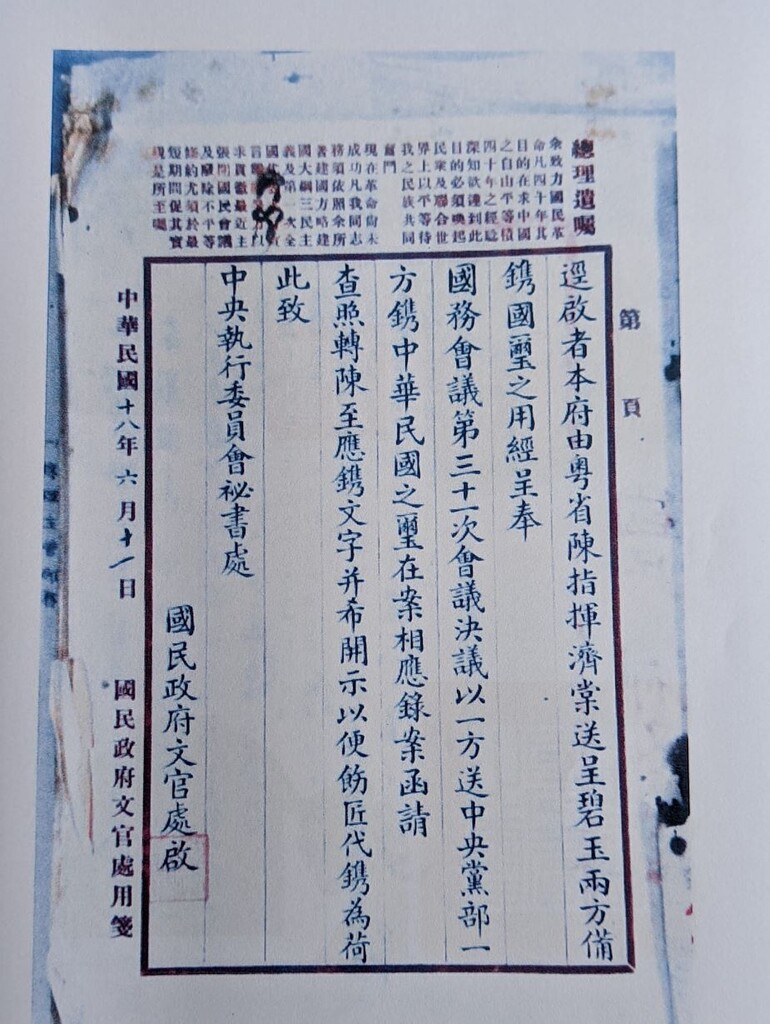 總理遺囑
余致力國民革
命凡四十年其
目的在求中國
之自由平等積
四十年之經驗
深知欲達到此
目的必須喚起
民眾及聯合世
界上以平等待
我之民族共同
奮鬥
現在革命尚未
成功凡我同志
務須依照余所
著建國方略建
國大綱三民主
義及第一次全
國代
言
求貫徹最近主
張開國民會議
及廢除不平等
條約尤須於最
短期間促其實
現是所至囑
第 頁
逕啟者本府由粵省陳指揮濟棠送呈碧玉兩方備
鐫國璽之用經呈奉
國務會議第三十一次會議決議以一方送中央黨部一
方鐫中華民國之璽在案相應錄案函請
查照轉陳至應鐫文字并希開示以便飭匠代鐫為荷
此致
中央執行委員會祕書處
國民政府文官處啟
中華民國十八年六月十一日
國民政府文官處用箋